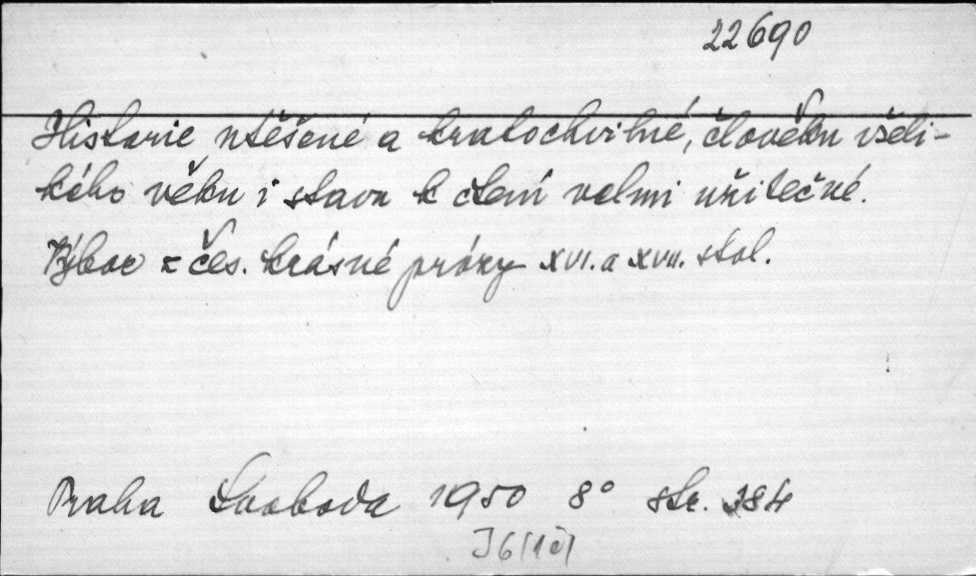 22690
Historie utěšené a kratochvilné, člověku všeli-
kého věku i stavu k čtení velmi užitečné.
Výbor z čes. krásné prózy XVI. a XVII. stol.
Praha Svoboda 1950 8° str. 384